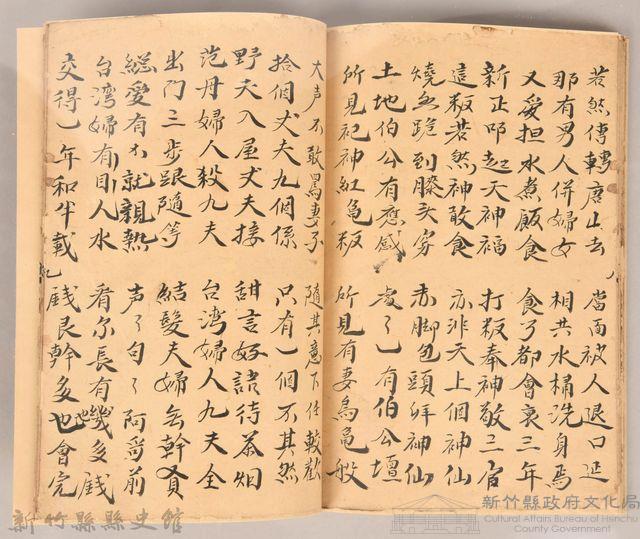 若然傳轉唐山去 當面被人退口延
那有男人併婦女 相共水桶洗身焉
又愛担水煮飯食 食了都會衰三年
新正叩起天神福 打粄奉神敬三官
這粄若然神敢食 亦非天上個神仙
燒跪到膝头 赤脚包頭拜神仙
土地伯公有應感 處々一有伯公壇
所見祀神紅龜粄 所見有妻為龜般
大声不敢罵妻子 隨其意下任較歡
拾個丈夫九個係 只有一個不其然
野夫入屋丈夫接 甜言好語待茶烟
范丹婦人殺九夫 台湾婦人九夫全
出门三步跟隨等 結髮夫婦無幹
緫愛有就親熱 声々句々阿哥前
台湾婦有目人水 看尔長有幾多戔
交得一年和半載 戔艮幹多也會完
新竹縣縣史館
新竹縣政府文化局
Cultural Affairs Bureau of Hsinchu
County Government